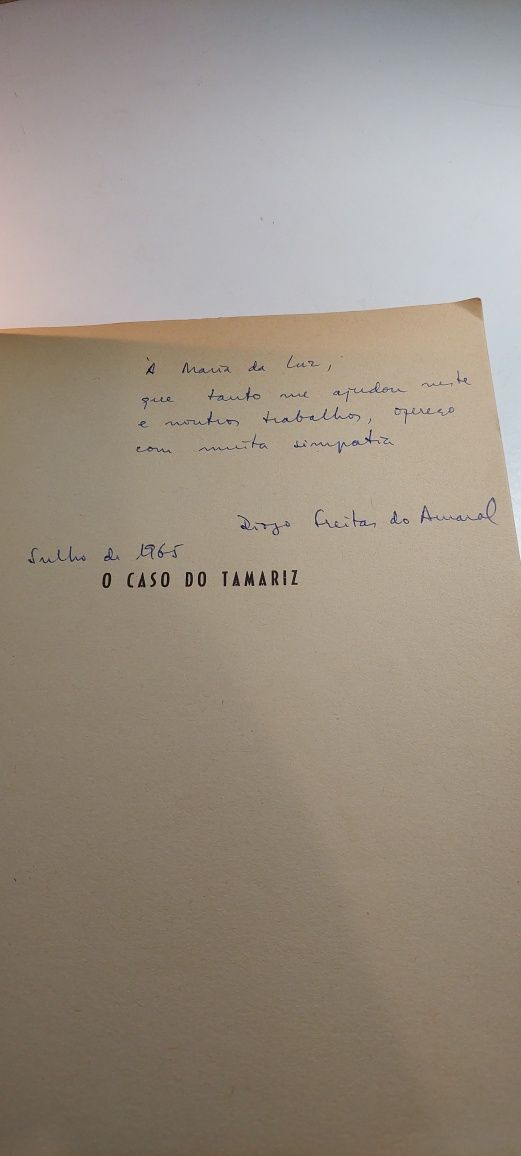 À Maria da Luz,
que tanto me ajudou neste
e noutros trabalhos, ofereço
com muita simpatia
Diogo Freitas do Amaral
Julho de 1965
O CASO DO TAMARIZ